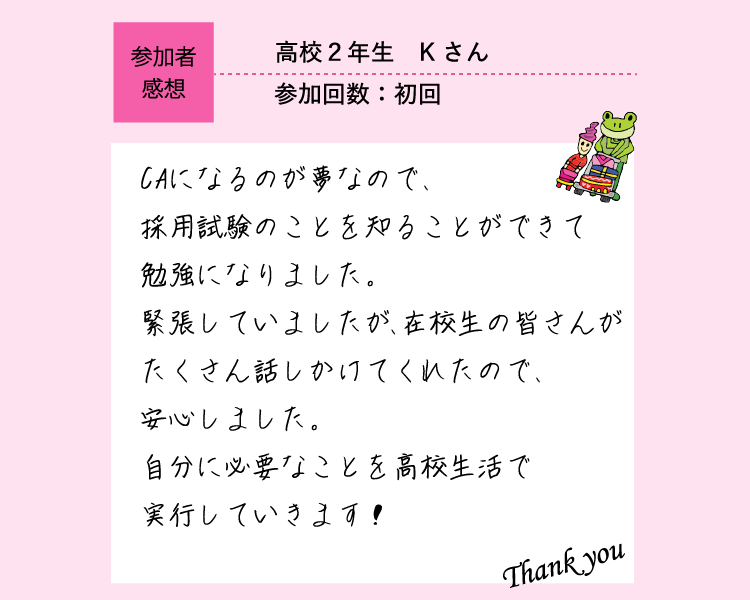 参加者
感想
高校２年生　Kさん
参加回数：初回
CAになるのが夢なので、
採用試験のことを知ることができて
勉強になりました。
緊張していましたが、在校生の皆さんが
たくさん話しかけてくれたので、
安心しました。
自分に必要なことを高校生活で
実行していきます！
Thank you